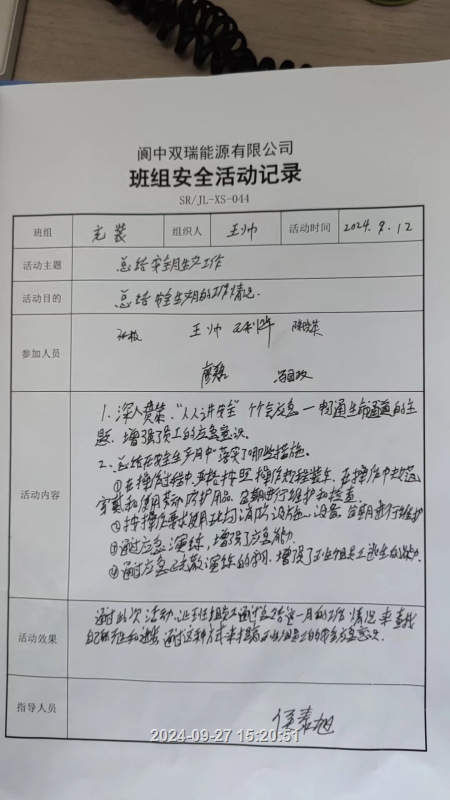 阆中双瑞能源有限公司
班组安全活动记录
SR/JL-XS-044
班组 充装 组织人 王帅 活动时间 2024.9.12
活动主题 总结安全月生产工作
活动目的 总结安全生产月的工作情况.
参加人员 王帅
廖
活动内容
1、深入贯策、“人人讲安全”个个会应急 一畅通生命通道的主
题. 增强了员工的应急意识。
2、总结在安全生产月中落实了哪些措施。
①在操作过程中,严格按照操作规程装车,在操作中规范
穿戴和使用劳动防护用品,定期进行维护和检查
②按操作要求使用 消防设施、设备,定期进行维护
③通过应急演练,增强了应急能力
④通过应急疏散演练的 ,增强了 组员工逃生的能力.
活动效果
通过此次活动,让班组员工通过总结这一月的工作情况来查找
自己的 和进步 通过这种方式来提高 员工的安全应急意识.
指导人员
2024-09-27 15:20:51